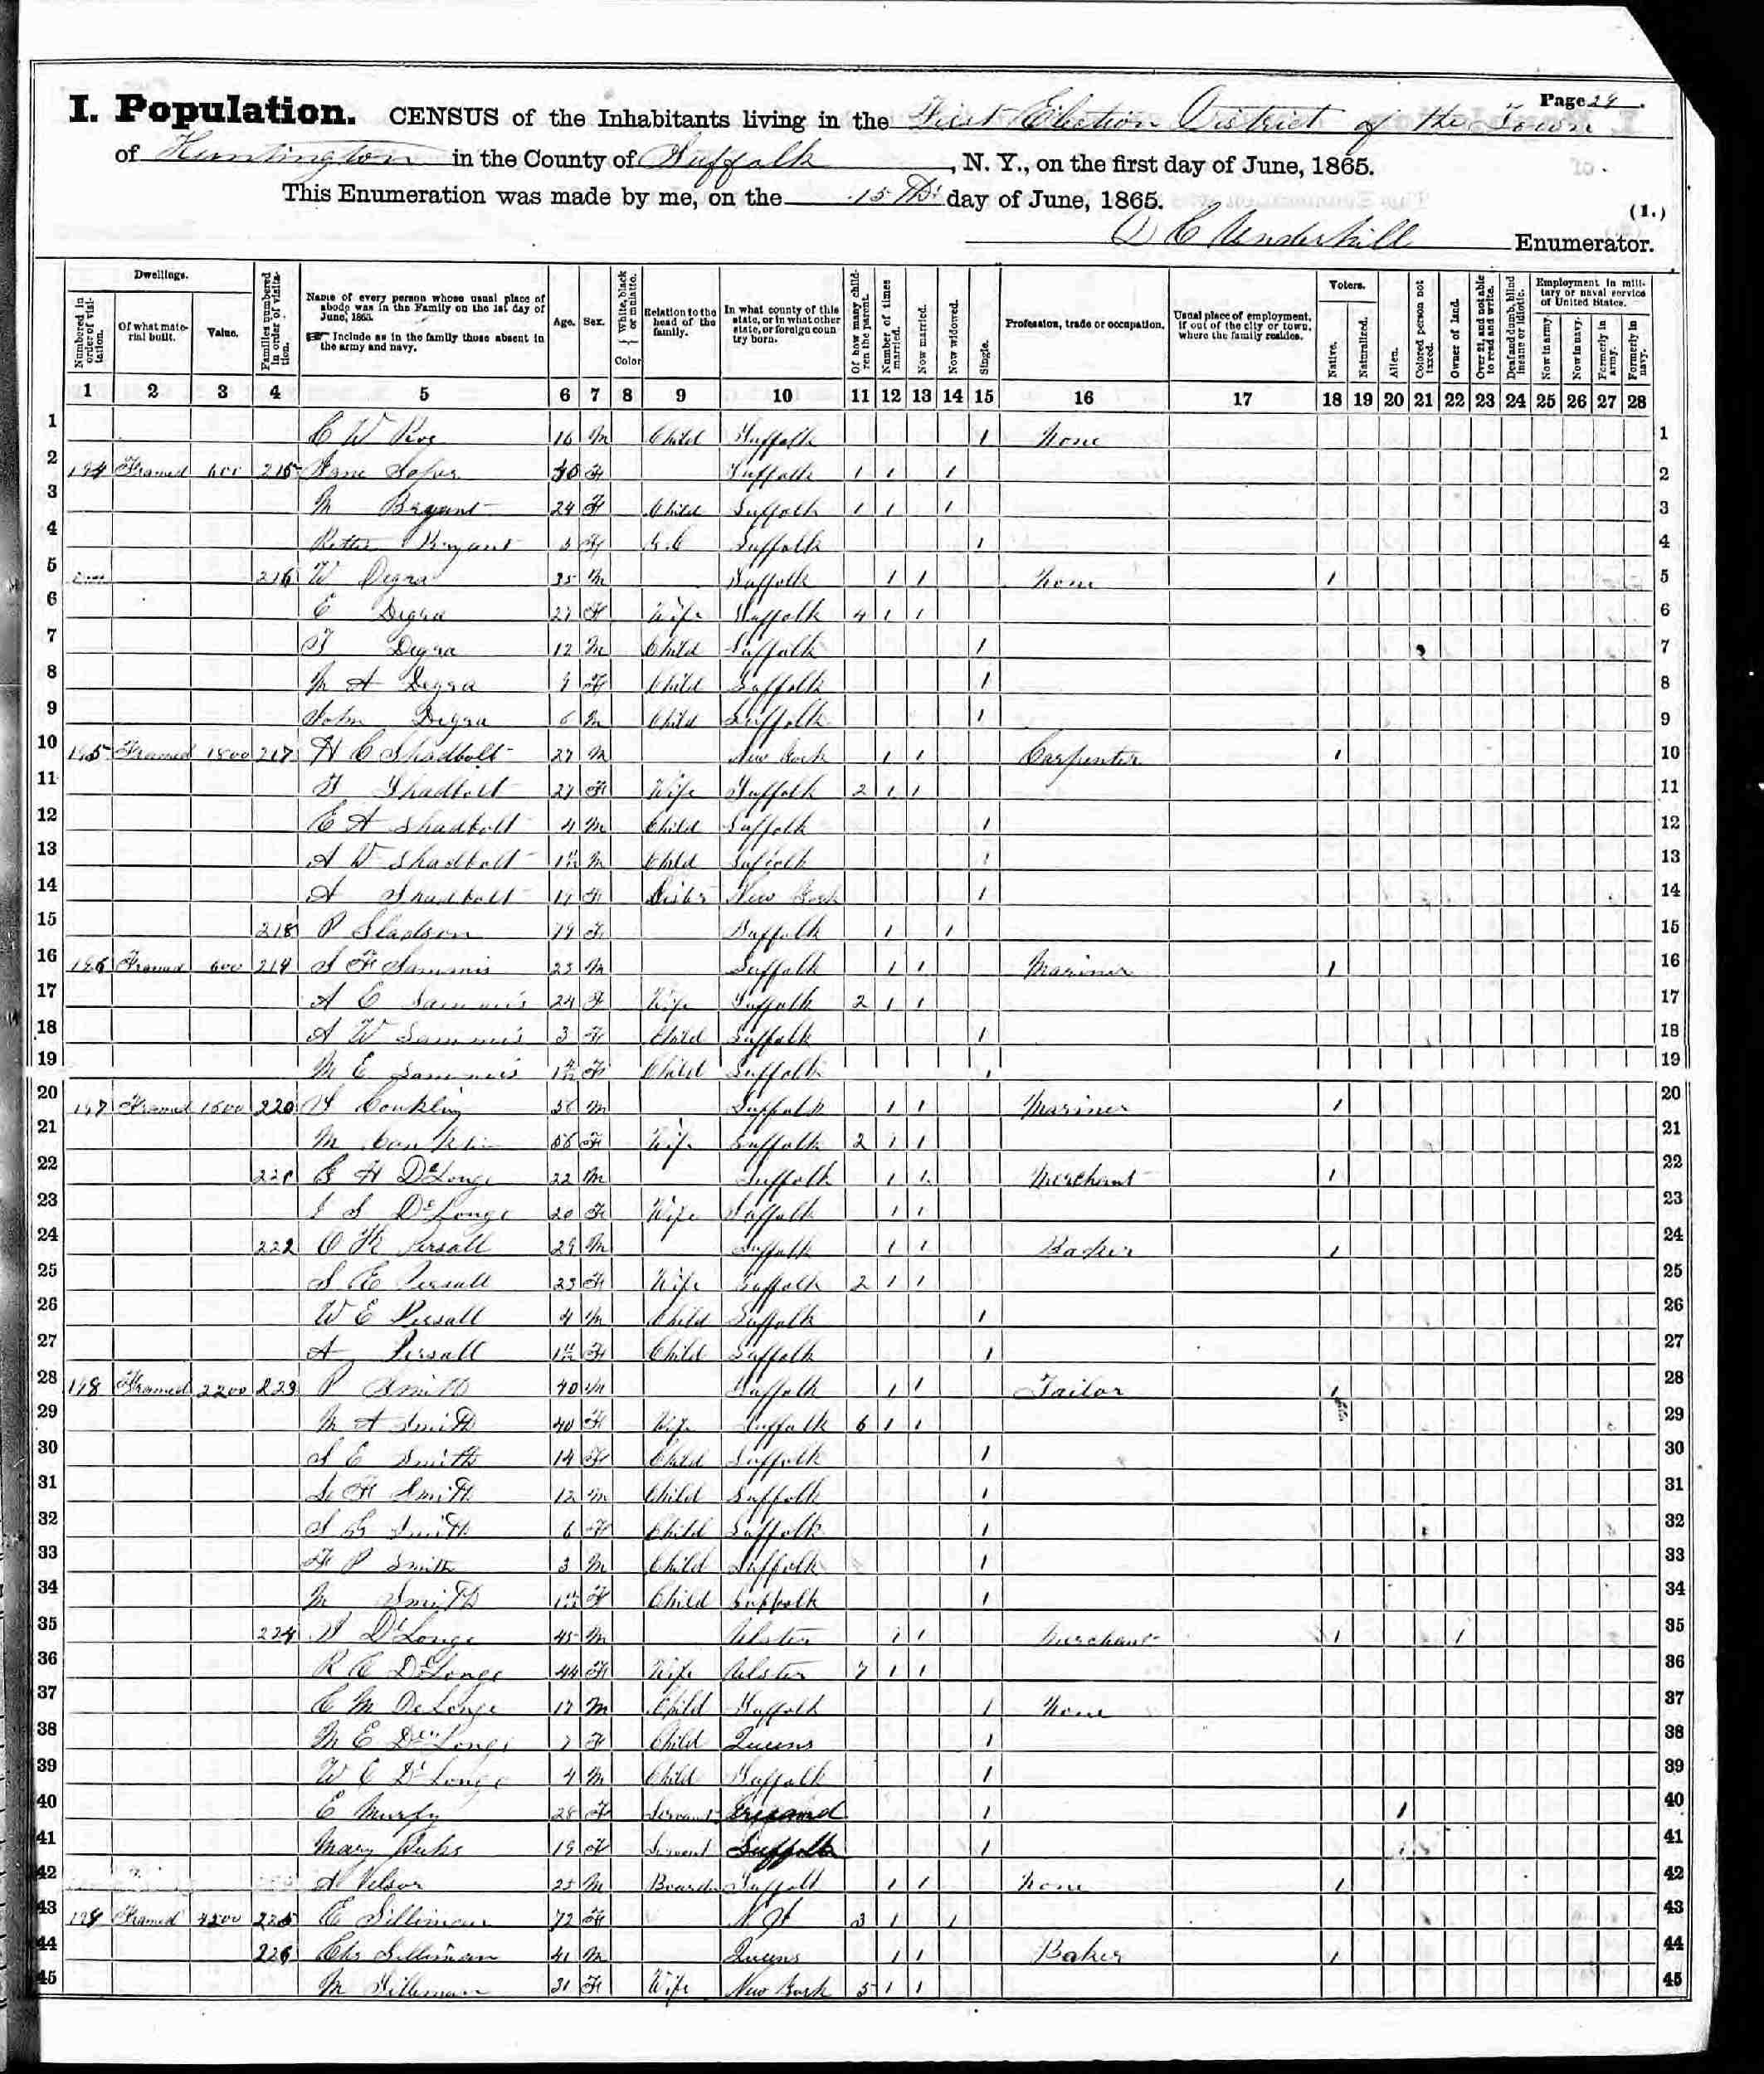 Page 29.
I. Population. CENSUS of the Inhabitants living in the First Election District of the Town
of Huntington in the County of Suffolk, N. Y., on the first day of June, 1865.
This Enumeration was made by me, on the 15 Th day of June, 1865.
(1.)
D C Underhill Enumerator.
Dwellings. Voters. Employment in military or naval service of United States.
Numbered in order of visitation. Of what material built. Value. Families numbered in order of visitation. Name of every person whose usual place of abode was in the Family on the 1st day of June, 1865. Include as in the family those absent in the army and navy. Age. Sex. White, black or mulatto. Color Relation to the head of the family. In what county of this state, or in what other state, or foreign country born. Of how many children the parent. Number of times married. Now married. Now widowed. Single. Profession, trade or occupation. Usual place of employment, if out of the city or town, where the family resides. Native. Naturalized. Alien. Colored person not taxed. Owner of land. Over 21, and not able to read and write. Deaf and dumb, blind insane or idiotic. Now in army. Now in navy. Formerly in army. Formerly in navy.
1 2 3 4 5 6 7 8 9 10 11 12 13 14 15 16 17 18 19 20 21 22 23 24 25 26 27 28
1 C W 16 M Child Suffolk 1 None 1
2 194 Framed 600 215 Jane F Suffolk 1 1 1 2
3 M Bryant 24 F Child Suffolk 1 1 1 3
4 Bryant F G.C Suffolk 1 4
5 216 W Degra 35 M Suffolk 1 1 None 1 5
6 E Degra 27 F Wife Suffolk 4 1 1 6
7 Degra 12 M Child Suffolk 1 7
8 M A Degra 9 F Child Suffolk 1 8
9 John Degra 6 M Child Suffolk 1 9
10 195 Framed 1800 217 H C Shadbolt 27 M New York 1 1 Carpenter 1 10
11 Shadbolt 27 F Wife Suffolk 2 1 1 11
12 E A Shadbolt 4 M Child Suffolk 1 12
13 A W Shadbolt M Child Suffolk 1 13
14 A Shadbolt F Sister New York 1 14
15 218 P F Suffolk 1 1 15
16 196 Framed 600 219 S F Sammis 23 M Suffolk 1 1 Mariner 1 16
17 A E Sammis 24 F Wife Suffolk 2 1 1 17
18 A W Sammis 3 F Child Suffolk 1 18
19 M E Sammis F Child Suffolk 1 19
20 197 Framed 1500 220 Conkling M Suffolk 1 1 Mariner 1 20
21 M Conklin 56 F Wife Suffolk 2 1 1 21
22 221 H DeLonge 22 M Suffolk 1 1 Merchant 1 22
23 S DeLonge 20 F Wife Suffolk 1 1 23
24 222 O Persall 29 M Suffolk 1 1 Baker 1 24
25 S E Persall 23 F Wife Suffolk 2 1 1 25
26 W E Persall 4 M Child Suffolk 1 26
27 A Persall F Child Suffolk 1 27
28 198 Framed 2200 223 P Smith 40 M Suffolk 1 1 Tailor 1 28
29 M A Smith 40 F Wife Suffolk 6 1 1 29
30 S E Smith 14 F Child Suffolk 1 30
31 Smith 12 M Child Suffolk 1 31
32 S Smith 6 F Child Suffolk 1 32
33 F P Smith 3 M Child Suffolk 1 33
34 M Smith F Child Suffolk 1 34
35 224 DeLonge 45 M Ulster 1 1 Merchant 1 1 35
36 R C DeLonge 44 F Wife Ulster 7 1 1 36
37 C M DeLonge 17 M Child Suffolk 1 None 37
38 M E DeLonge 7 F Child Queens 1 38
39 W C DeLonge 4 M Child Suffolk 1 39
40 E Murfy 28 F Servant Ireland 1 1 40
41 Mary 19 F Servant Suffolk 1 41
42 A 25 M Boarder Suffolk 1 1 None 1 42
43 199 Framed 4500 225 E Silliman 72 F 3 1 1 43
44 226 Chs Silliman 41 M Queens 1 1 Baker 1 44
45 M Silliman 31 F Wife New York 5 1 1 45